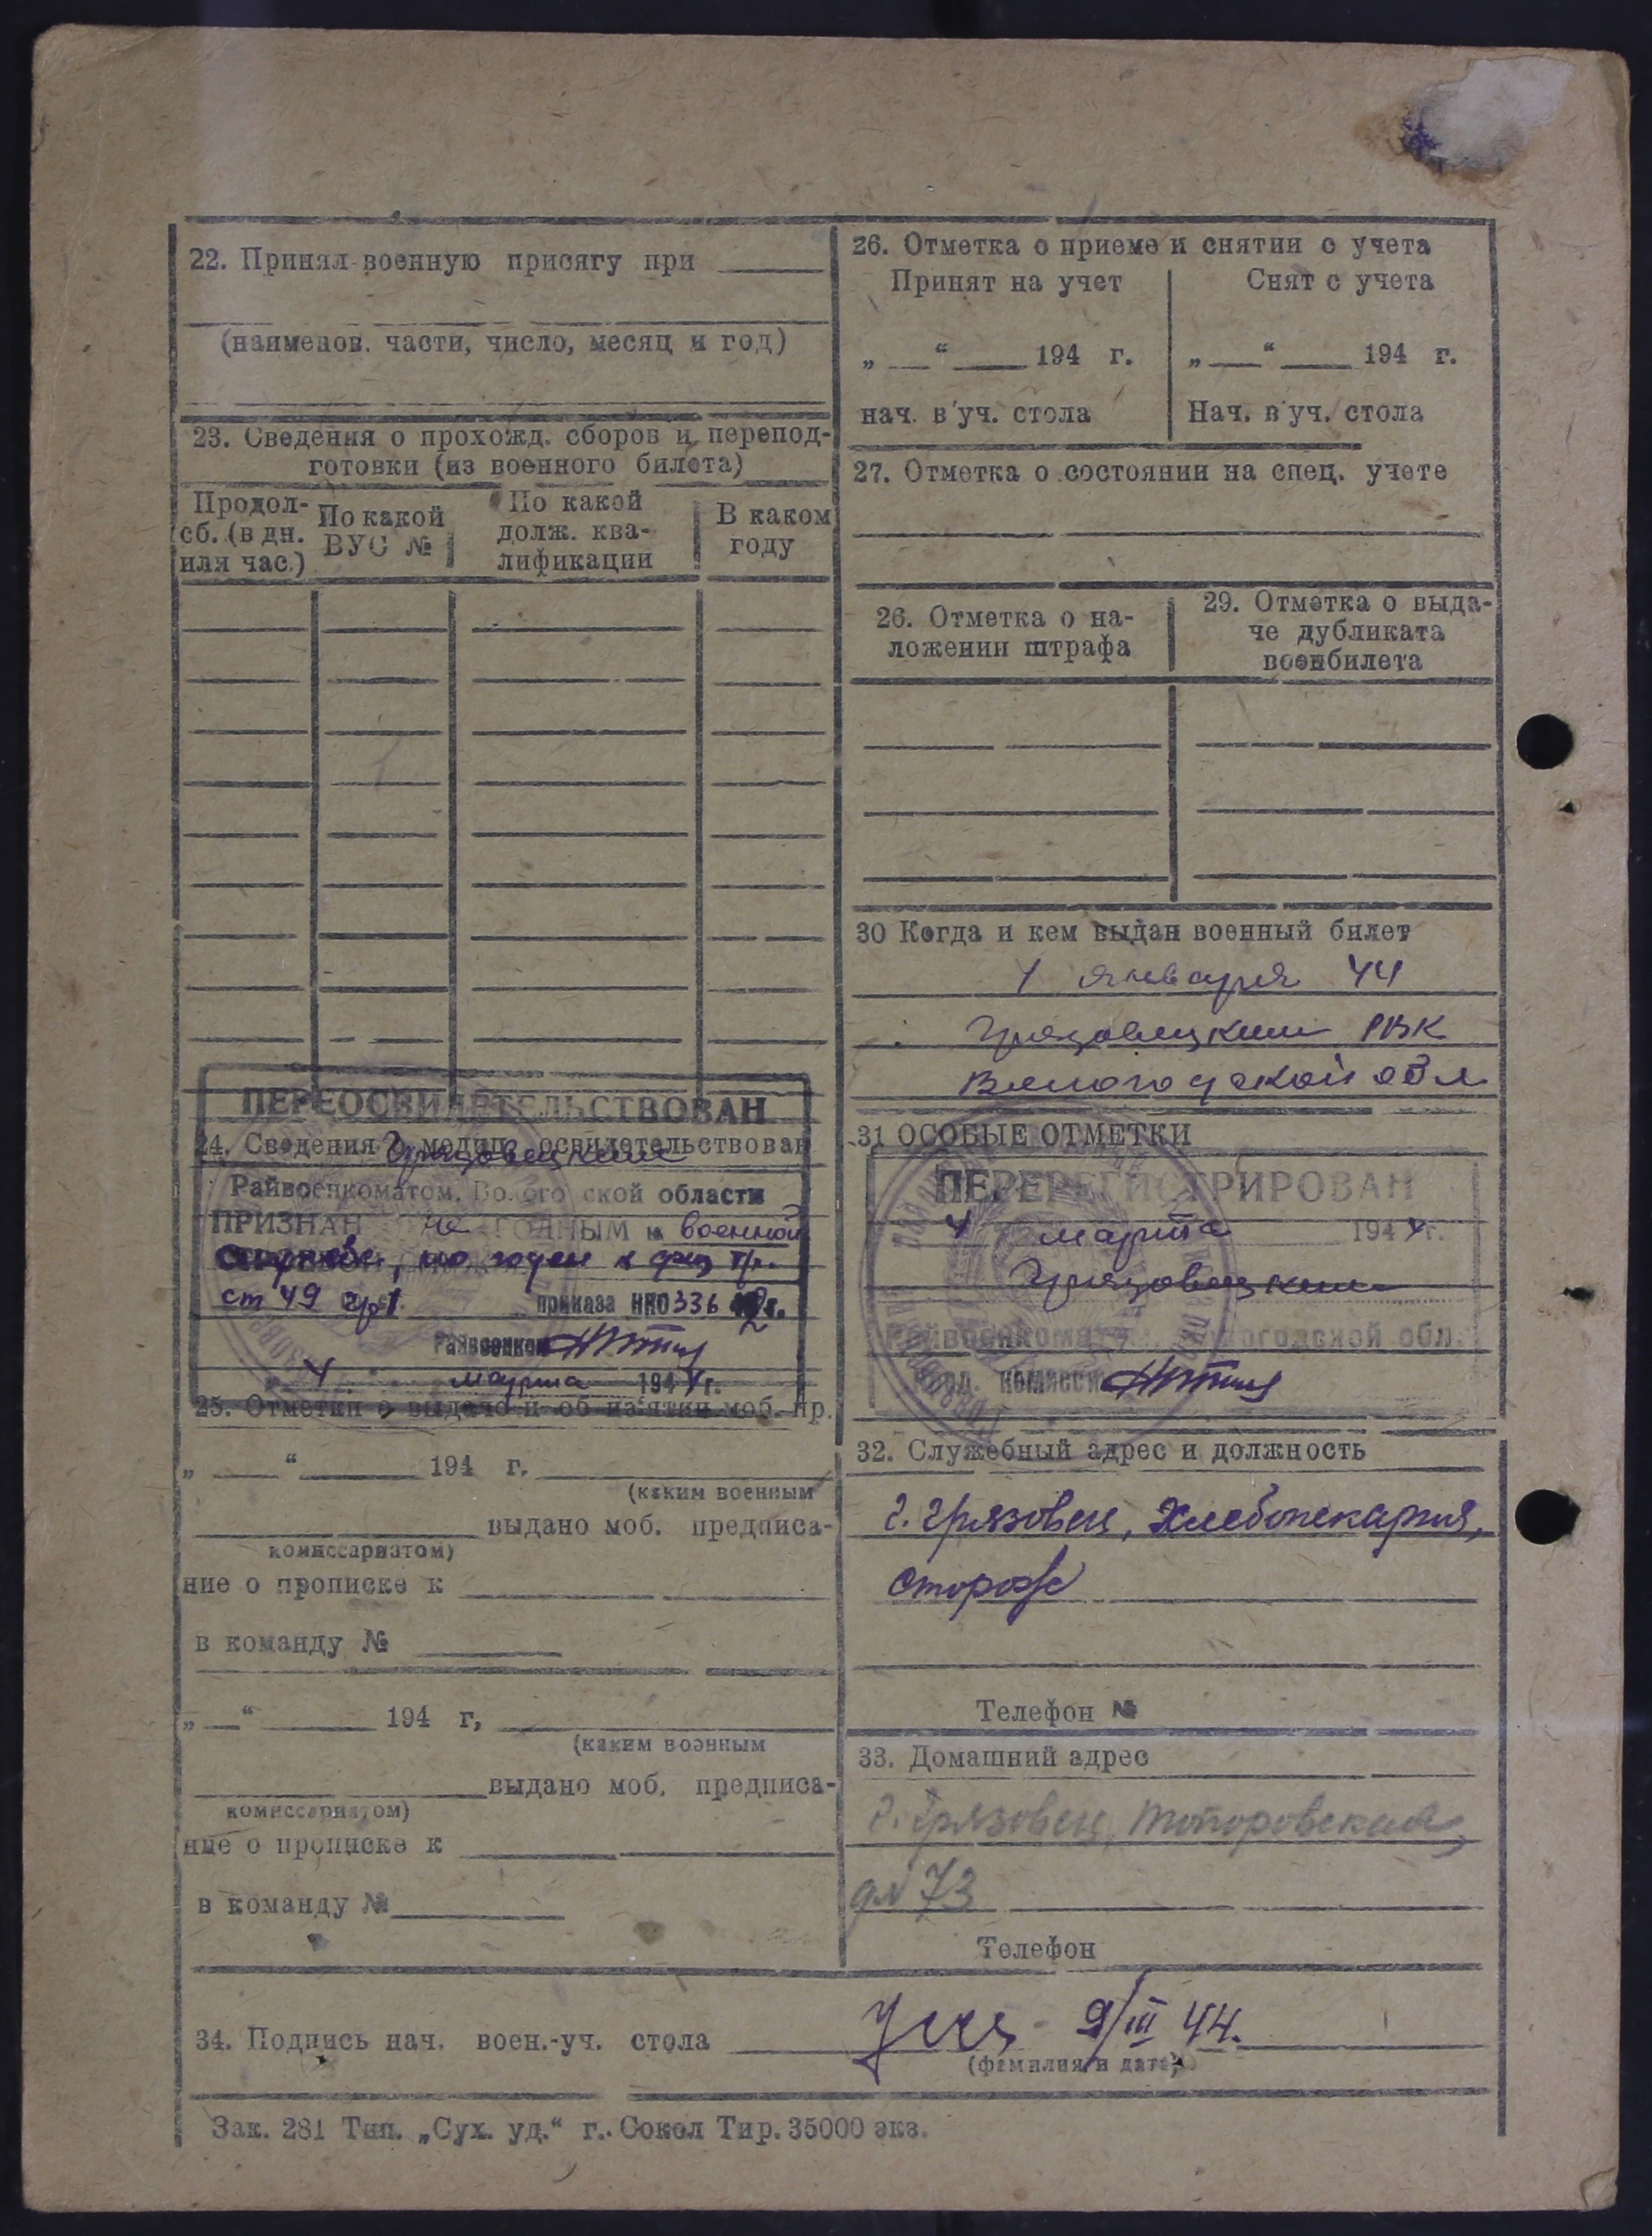 22. Принял военную присягу при
(наименов. части, число, месяц и год)
23. Сведения о прохожд. сборов и перепод-
готовки (из военного билета)
Продол-
сб. (в дн.
или час.)
По какой
ВУС №
По какой
долж. ква-
лификации
В каком
году
ПЕРЕОСВИДЕТЕЛЬСТВОВАН
24. Сведения о медиц. освидетельствован
Грязовецким
Райвоенкоматом, Вологодской области
ПРИЗНАН не ГОДНЫМ к военной
службе, но годен к физ тр.
ст 49 гр 1. приказа НКО 336 42 г.
Райвоенком
4 марта 1944 г.
25. Отметки о выдаче и об из'ятии моб. пр.
„ “ 194 г.
(каким военным
выдано моб. предписа-
комиссариатом)
ние о прописке к
в команду №
„ “ 194 г,
(каким военным
выдано моб. предписа-
комиссариатом)
ние о прописке к
в команду №
26. Отметка о приеме и снятии с учета
Принят на учет
Снят с учета
„ “ 194 г.
„ “ 194 г.
нач. в'уч. стола
Нач. в'уч. стола
27. Отметка о состоянии на спец. учете
26. Отметка о на-
ложении штрафа
29. Отметка о выда-
че дубликата
военбилета
30 Когда и кем выдан военный билет
1 января 44
Грязовецким РВК
Вологодской обл
31 ОСОБЫЕ ОТМЕТКИ
ПЕРЕРЕГИСТРИРОВАН
4 марта 1944 г.
Грязовецким
Райвоенкомат Вологодской обл.
Пред. комиссии
32. Служебный адрес и должность
г. Грязовец, Хлебопекарня,
сторож
Телефон №
33. Домашний адрес
г. Грязовец, Топоровская,
д№ 73
Телефон
34. Подпись нач. воен.-уч. стола 9/III 44.
(фамилия и дата)
Зак. 281 Тип. „Сух. уд.“ г. Сокол Тир. 35000 экз.